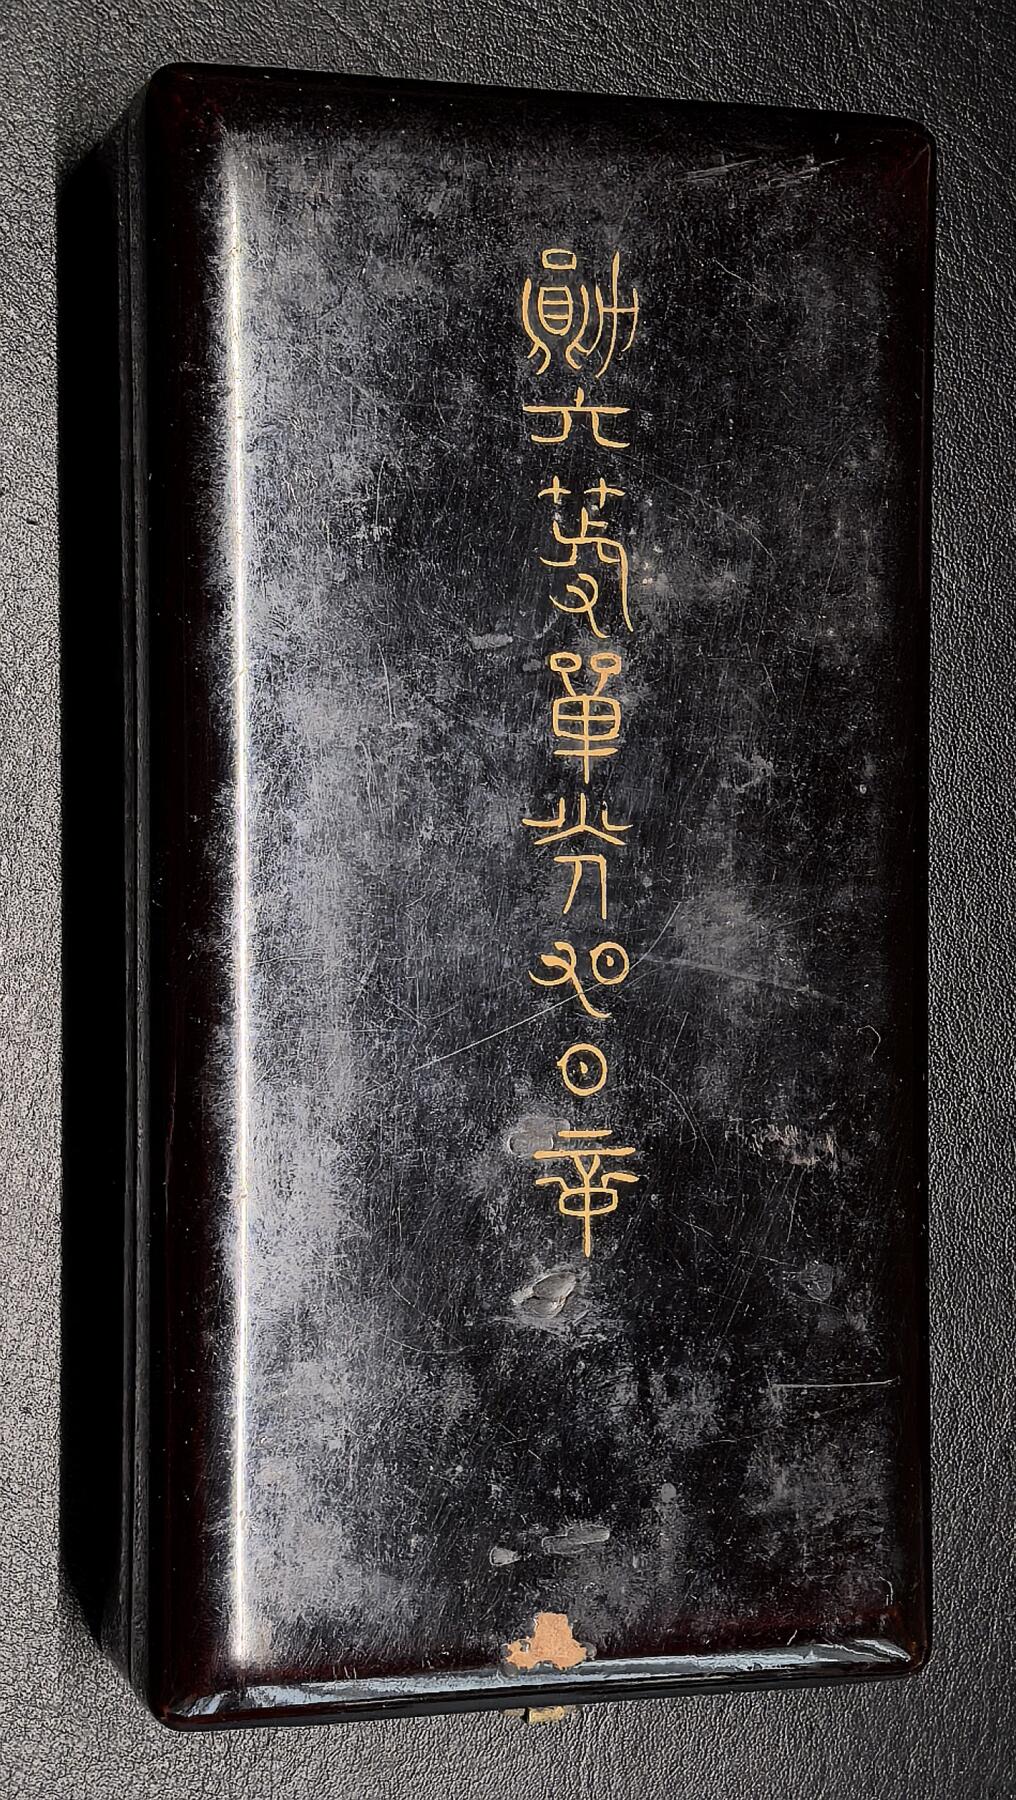 勲六等單光旭日章